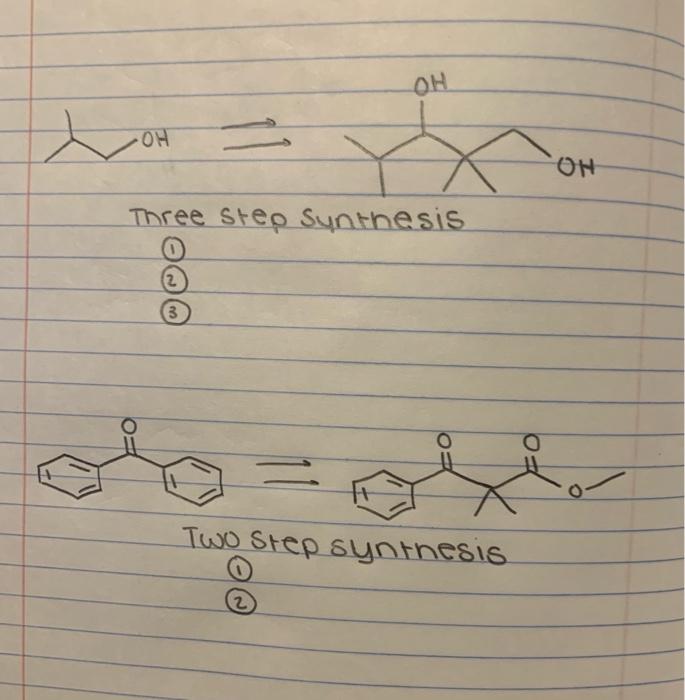 OH
OH
OH
Three step synthesis
①
②
③
O
O
O
O
Two step synthesis
①
②